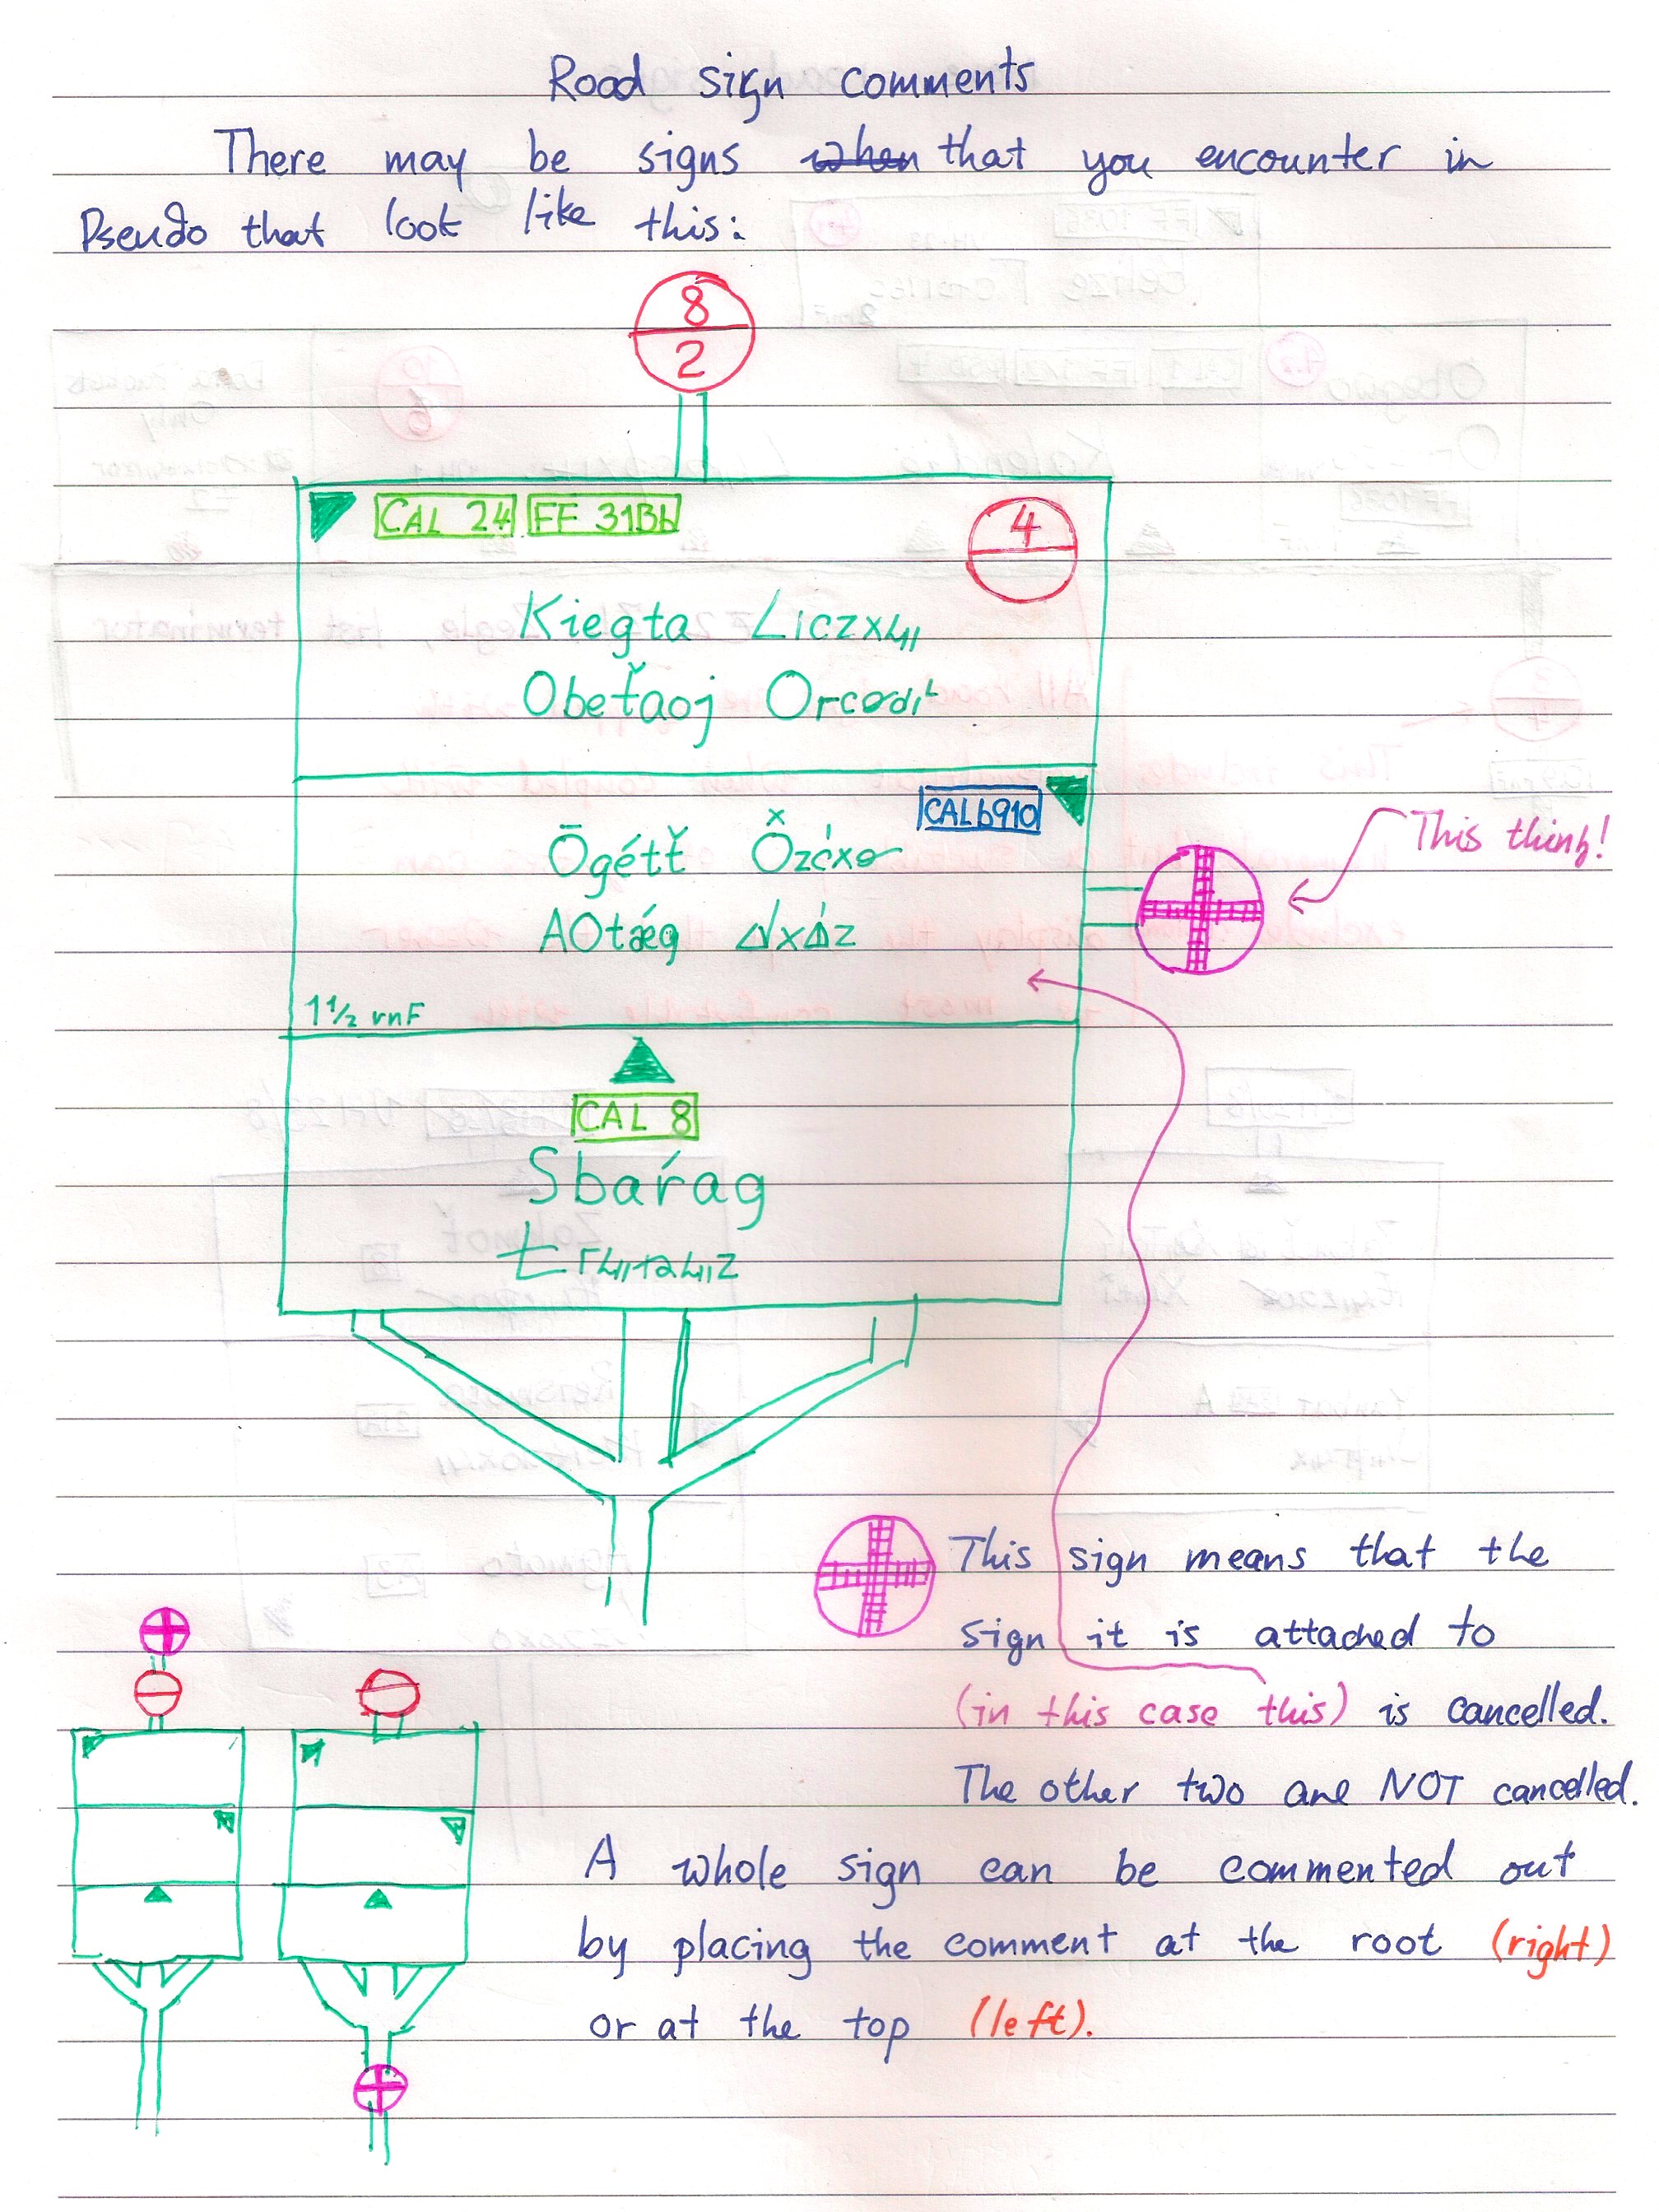 Road sign comments
There may be signs when that you encounter in
Pseudo that look like this:
8
2
CAL 24 FF 31Bb
4
Kiegta
Obeťaoj
CAL b910
This thing!
Ōgétť
AOtǽg
1 1/2 vnF
CAL 8
Sbaŕag
This sign means that the
sign it is attached to
(in this case this) is cancelled.
The other two are NOT cancelled.
A whole sign can be commented out
by placing the comment at the root (right)
or at the top (left).